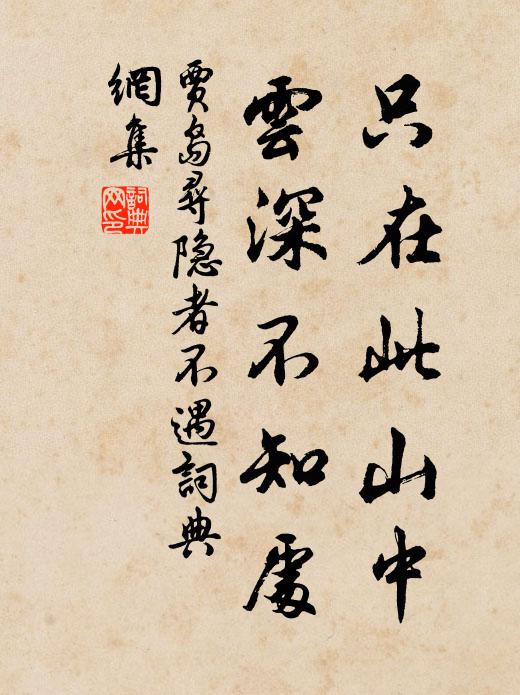 只在此山中
雲深不知處
賈島尋隐者不遇詞典
網集
詞典
网印